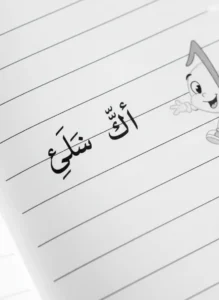 أكَّ سَلَعِ